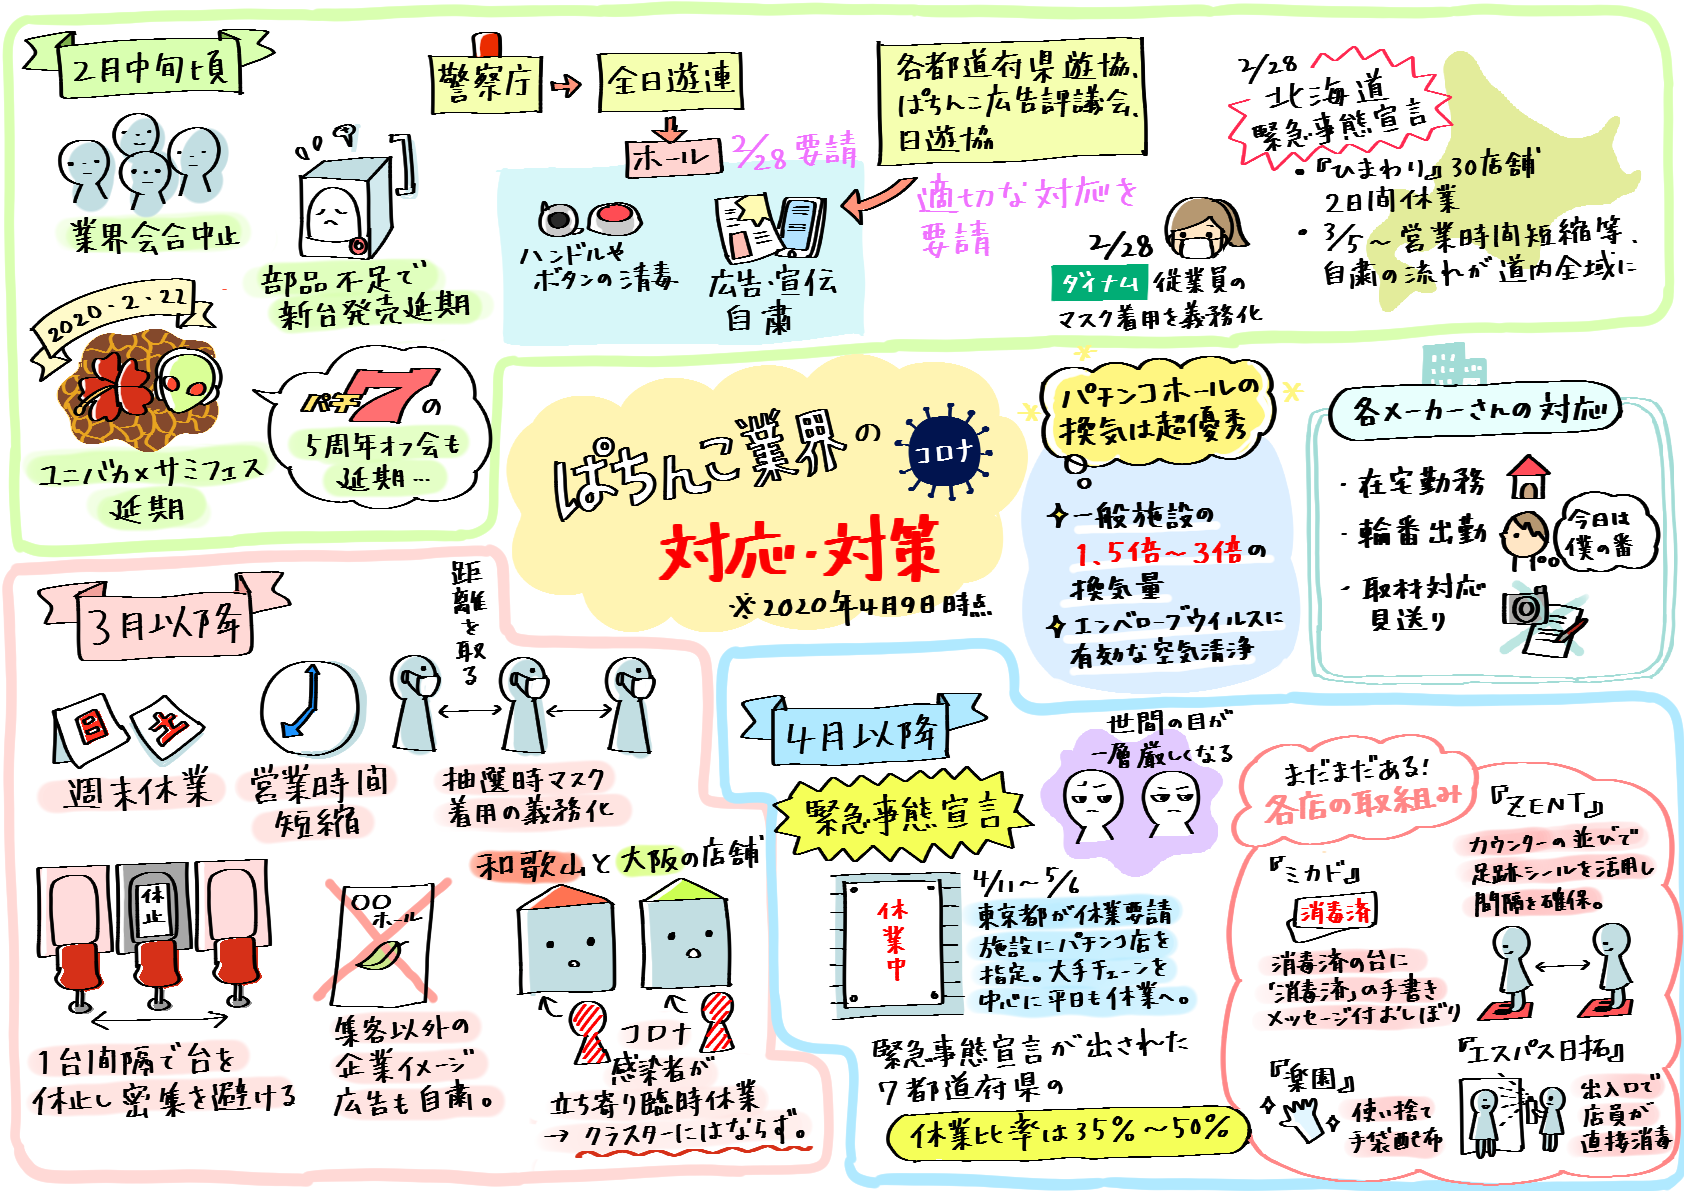 2月中旬頃
業界会合中止
部品不足で
新台発売延期
2020・2・22
ユニバカ×サミフェス
延期
7の
5周年オフ会も
延期…
警察庁
全日遊連
ホール
2/28要請
ハンドルや
ボタンの消毒
広告・宣伝
自粛
各都道府県遊協、
ぱちんこ広告評議会、
日遊協
適切な対応を
要請
2/28
ダイナム 従業員の
マスク着用を義務化
2/28
北海道
緊急事態宣言
・『ひまわり』30店舗
2日間休業
・3/5〜営業時間短縮等、
自粛の流れが道内全域に
ぱちんこ業界の
コロナ
対応・対策
※2020年4月9日時点
パチンコホールの
換気は超優秀
一般施設の
1.5倍〜3倍の
換気量
エンベロープウイルスに
有効な空気清浄
各メーカーさんの対応
・在宅勤務
・輪番出勤
今日は
僕の番
・取材対応
見送り
3月以降
日
土
週末休業
営業時間
短縮
距離を取る
抽選時マスク
着用の義務化
休止
1台間隔で台を
休止し密集を避ける
〇〇
ホール
集客以外の
企業イメージ
広告も自粛。
和歌山と大阪の店舗
コロナ
感染者が
立ち寄り臨時休業
→クラスターにはならず。
4月以降
緊急事態宣言
世間の目が
一層厳しくなる
休業中
4/11〜5/6
東京都が休業要請
施設にパチンコ店を
指定。大手チェーンを
中心に平日も休業へ。
緊急事態宣言が出された
7都道府県の
休業比率は35%〜50%
まだまだある!
各店の取組み
『ミカド』
消毒済
消毒済の台に
「消毒済」の手書き
メッセージ付おしぼり
『ZENT』
カウンターの並びで
足跡シールを活用し
間隔を確保。
『楽園』
使い捨て
手袋配布
『エスパス日拓』
出入口で
店員が
直接消毒